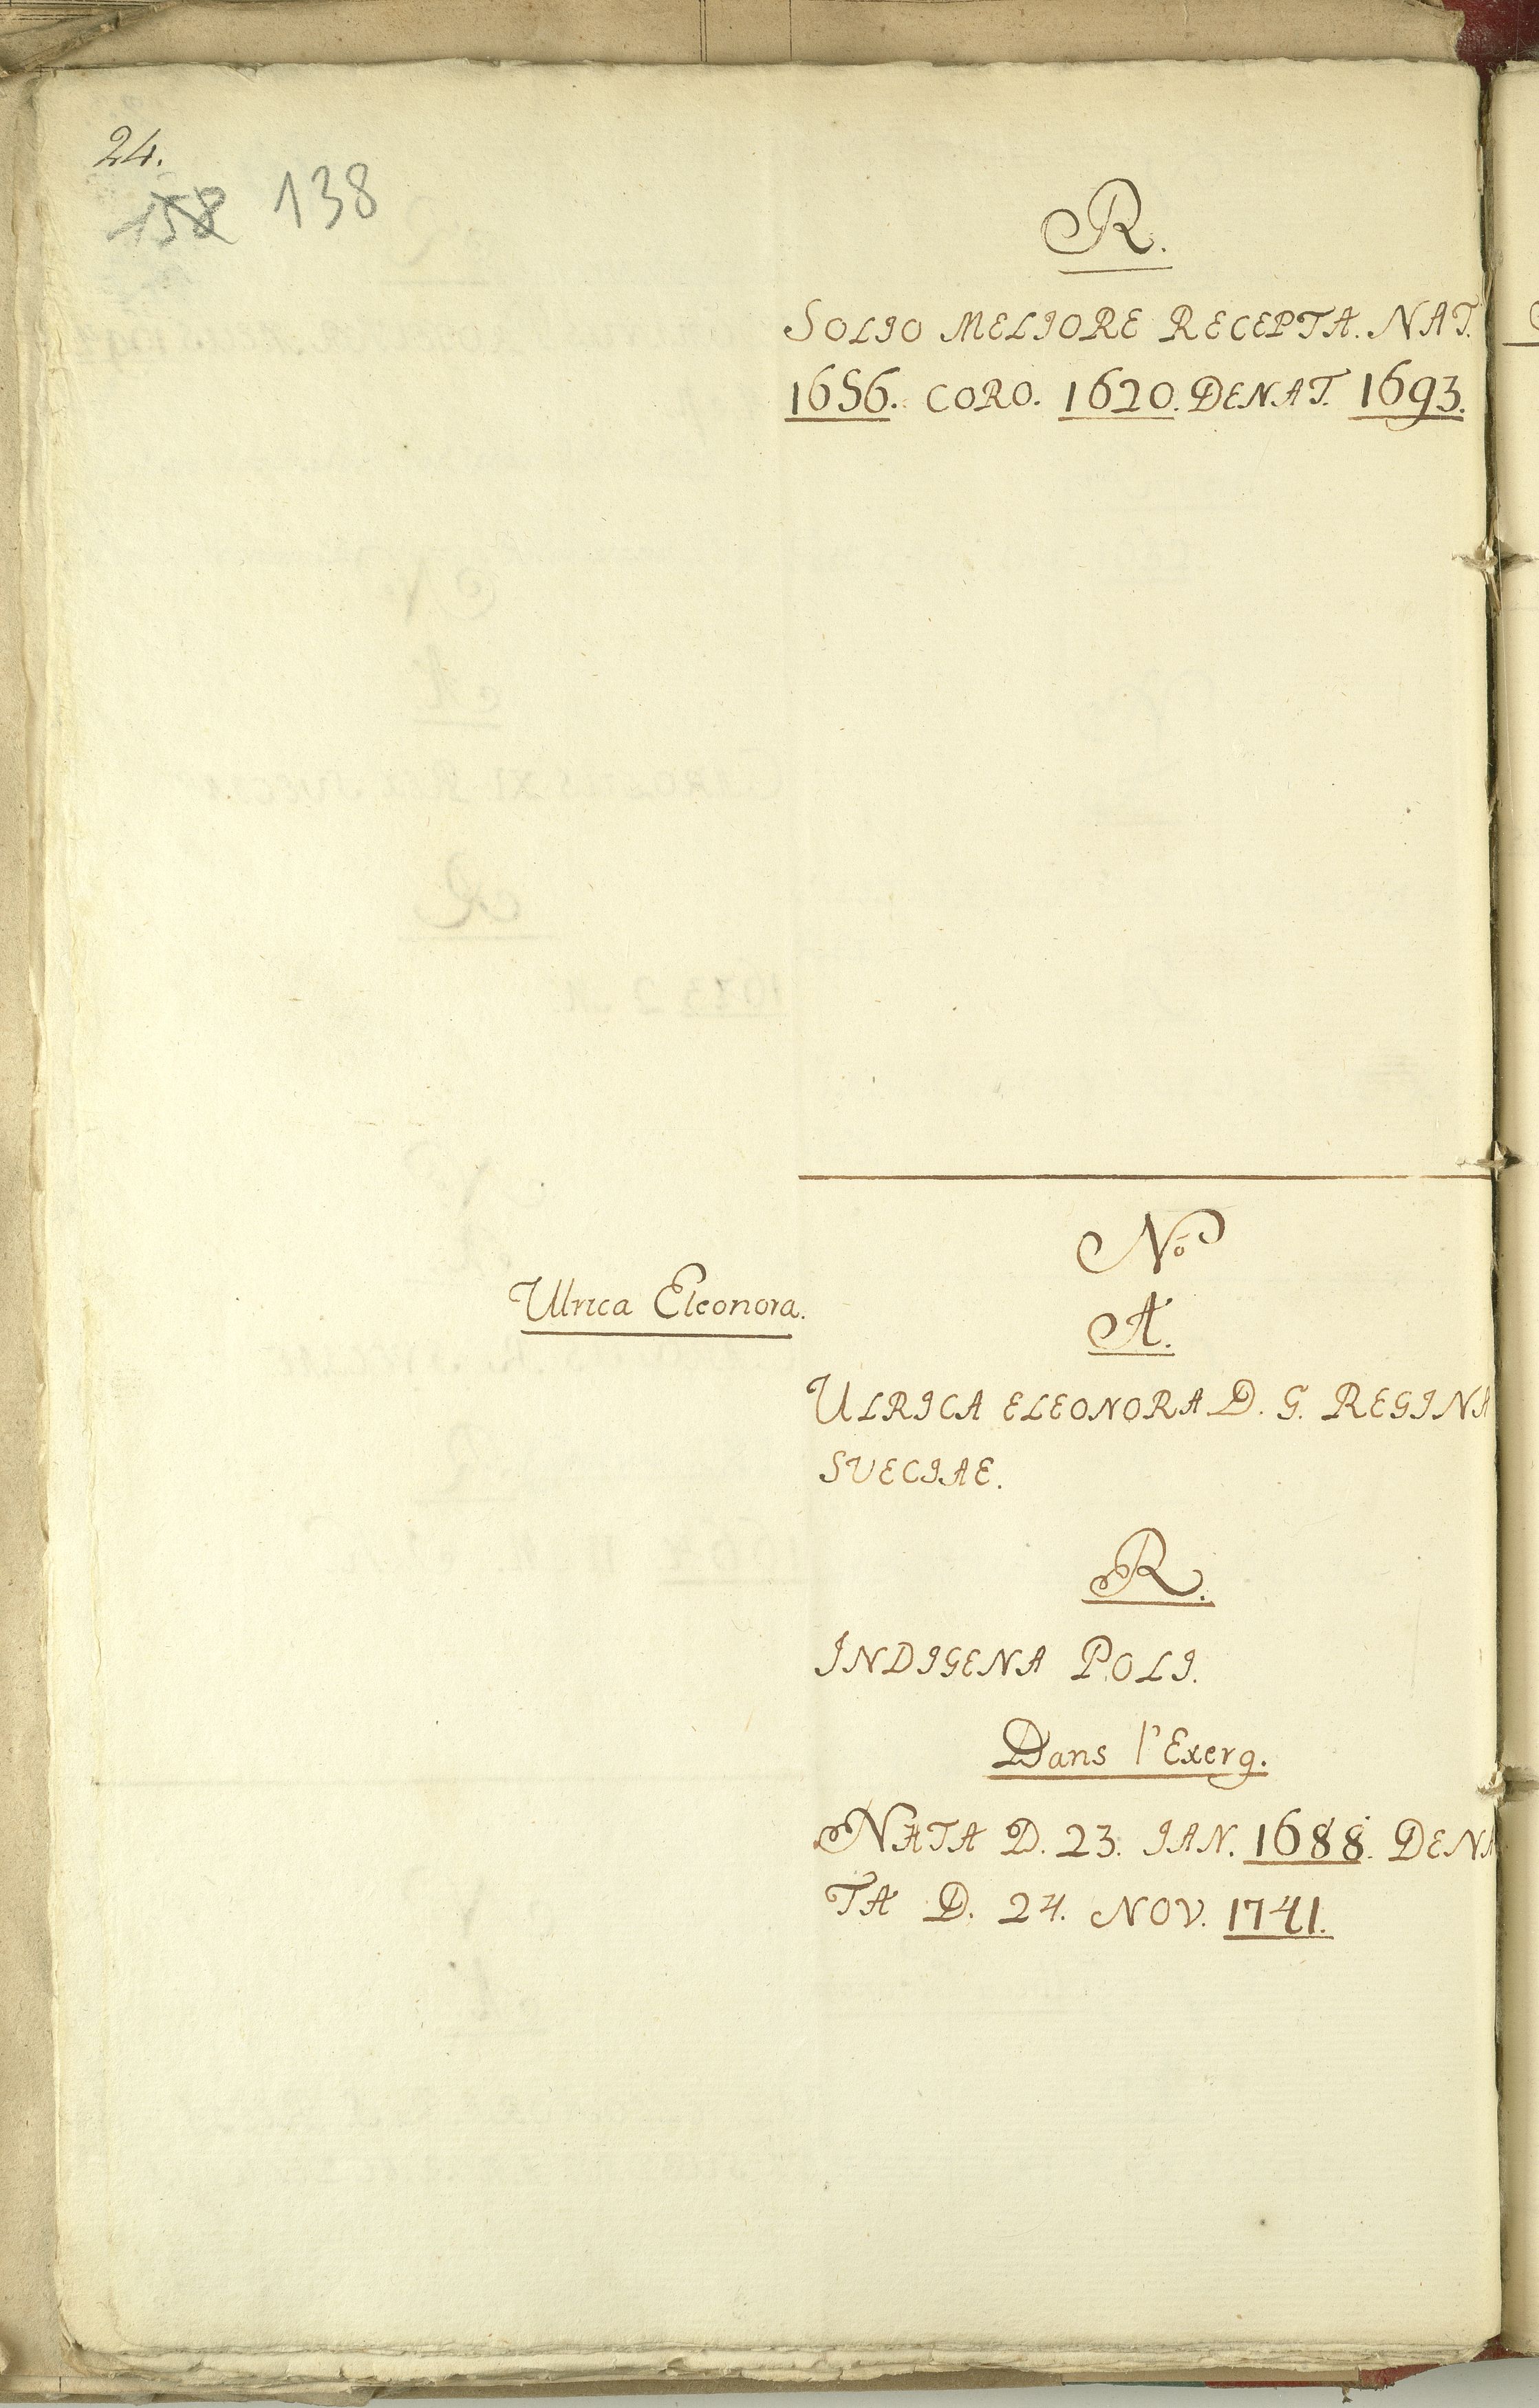 24.
158 138
R.
SOLIO MELIORE RECEPTA. NAT.
1656. CORO. 1620. DENAT. 1693.
No
Ulrica Eleonora.
A.
ULRICA ELEONORA D. G. REGINA
SVECIAE.
R.
INDIGENA POLI.
Dans l'Exerg.
NATA D. 23. IAN. 1688. DENA
TA D. 24. NOV. 1741.